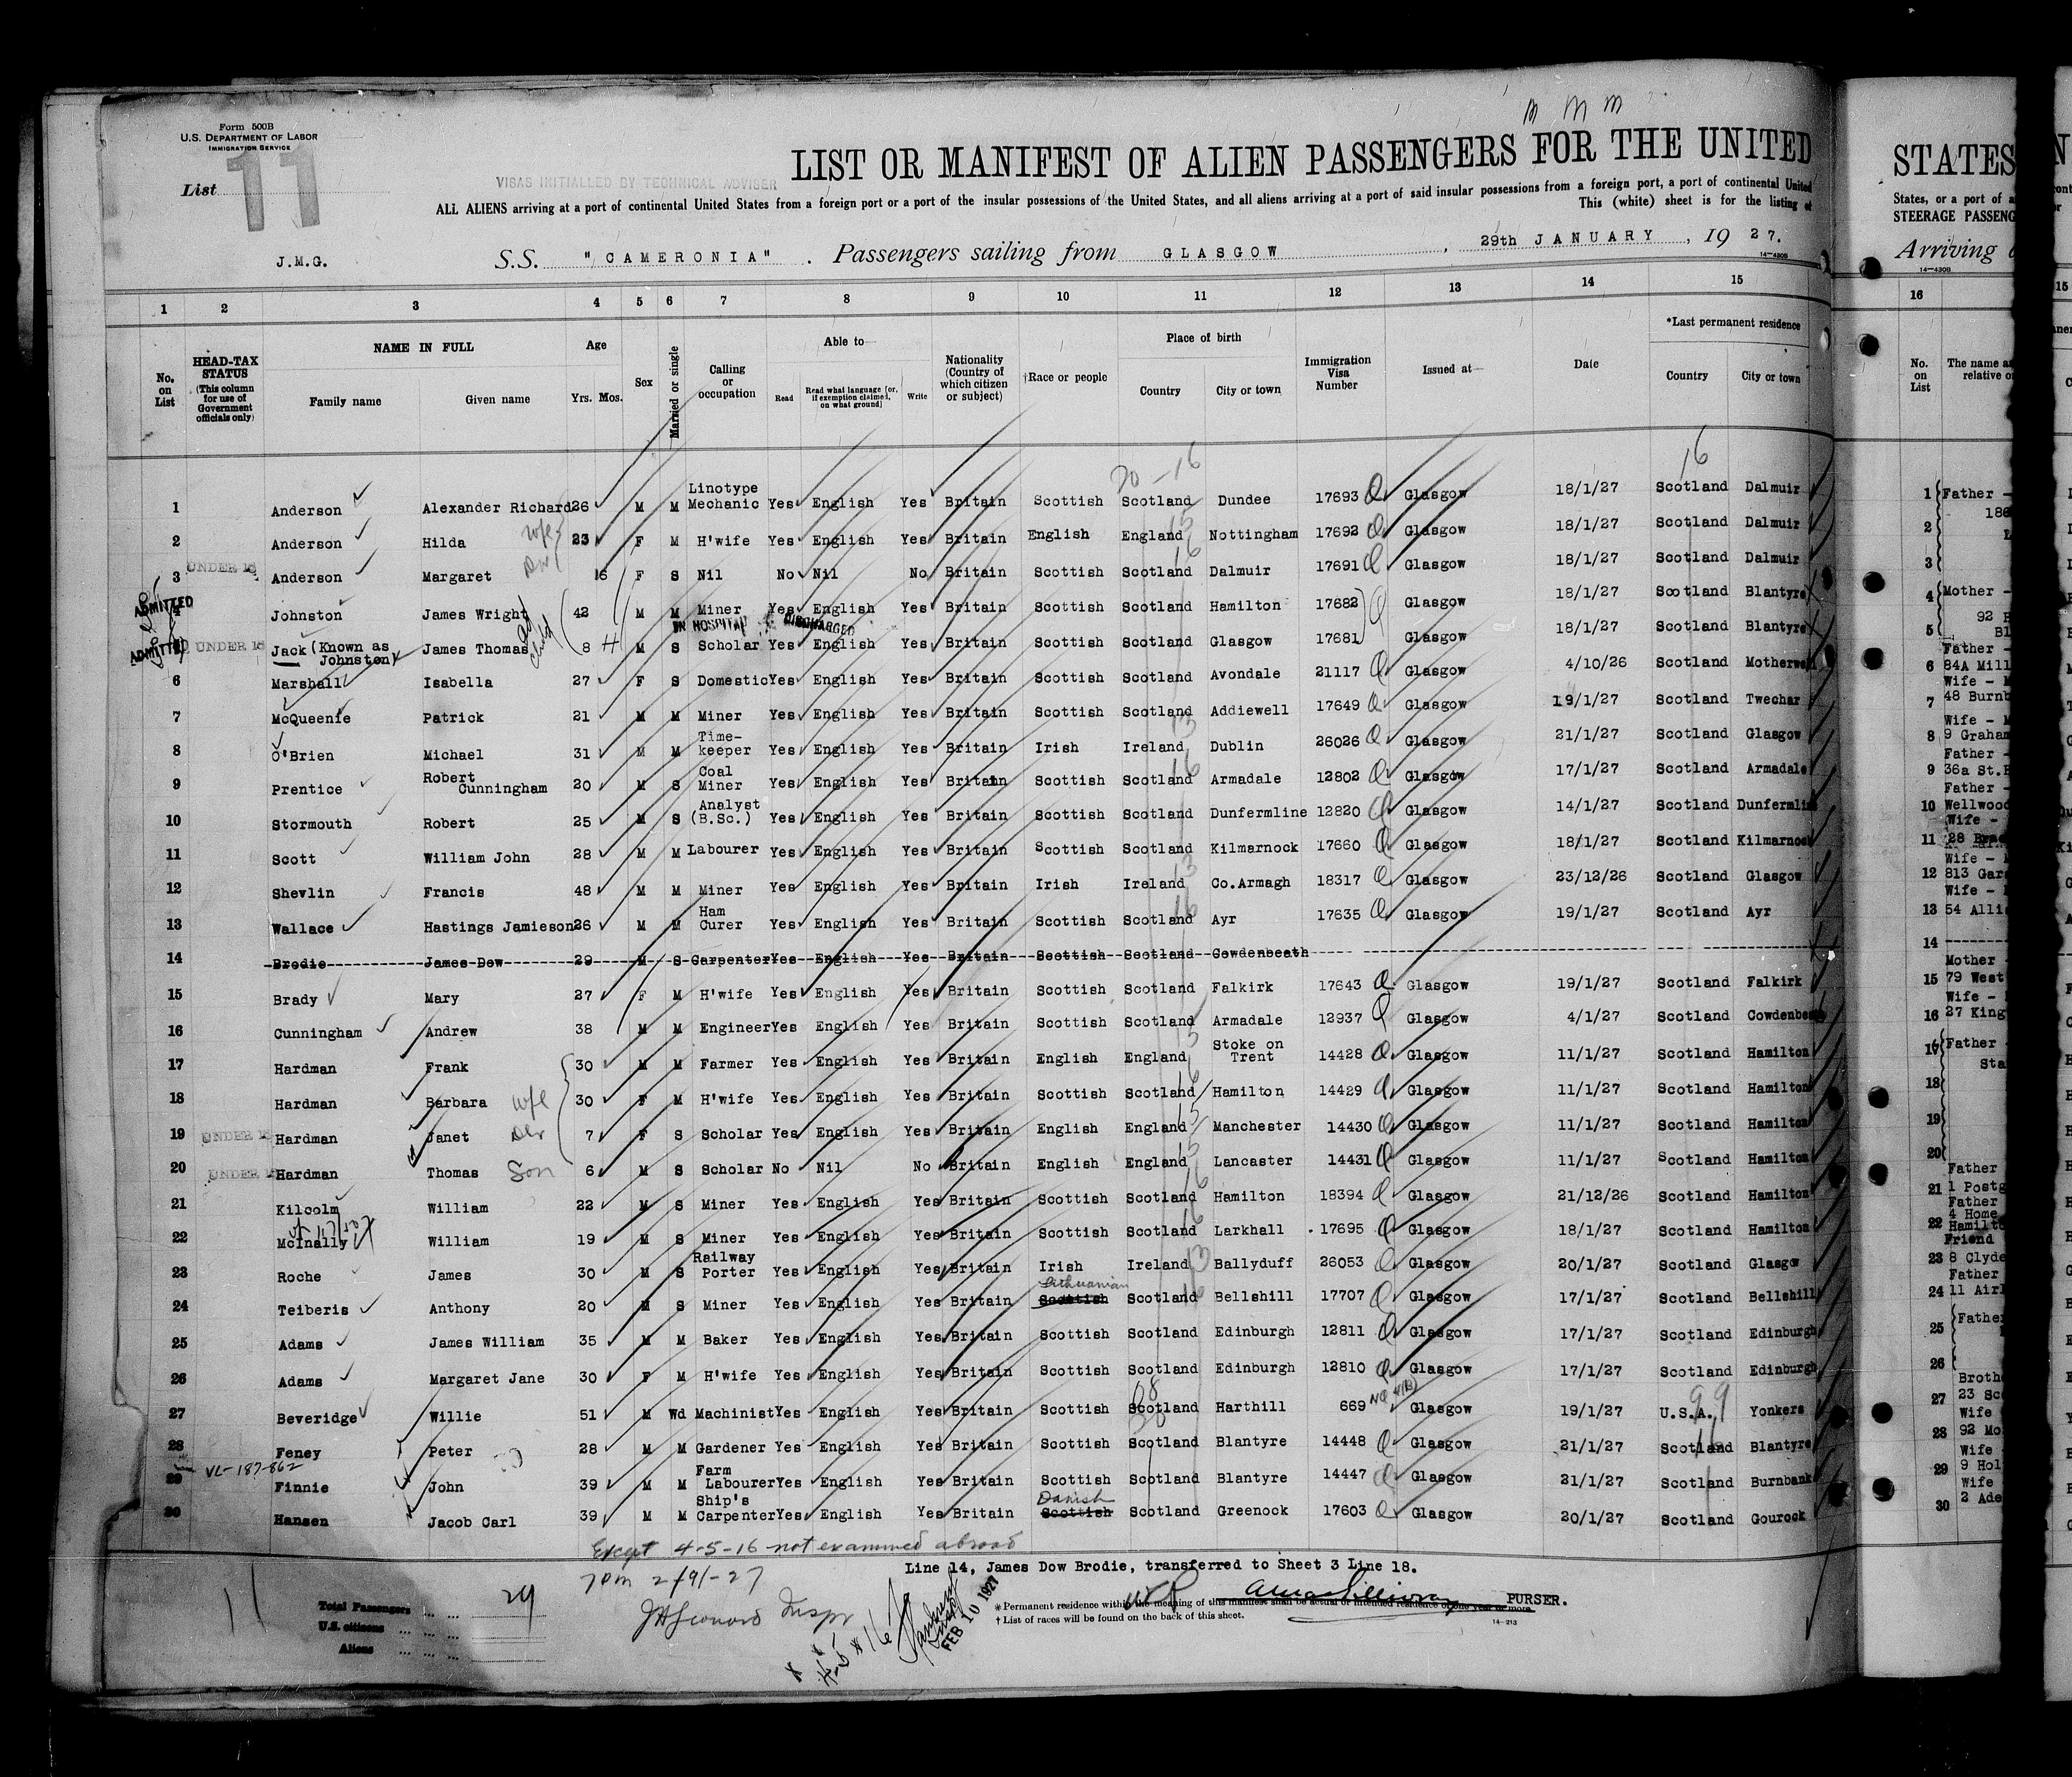 M M M
Form 500B
U.S. DEPARTMENT OF LABOR
IMMIGRATION SERVICE
List 11
VISAS INITIALLED BY TECHNICAL ADVISER
LIST OR MANIFEST OF ALIEN PASSENGERS FOR THE UNITED
ALL ALIENS arriving at a port of continental United States from a foreign port or a port of the insular possessions of the United States, and all aliens arriving at a port of said insular possessions from a foreign port, a port of continental United
This (white) sheet is for the listing of
J.M.G.
S.S. "CAMERONIA". Passengers sailing from GLASGOW, 29th JANUARY, 1927.
14-430B
1 2 3 4 5 6 7 8 9 10 11 12 13 14 15
No. on List
HEAD-TAX STATUS (This column for use of Government officials only)
NAME IN FULL
Family name Given name
Age
Yrs. Mos.
Sex
Married or single
Calling or occupation
Able to
Read Read what language [or, if exemption claimed, on what ground] Write
Nationality (Country of which citizen or subject)
†Race or people
Place of birth
Country City or town
Immigration Visa Number
Issued at
Date
*Last permanent residence
Country City or town
20-16 16
1 Anderson Alexander Richard 26 M M Linotype Mechanic Yes English Yes Britain Scottish Scotland Dundee 17693 Glasgow 18/1/27 Scotland Dalmuir
2 Anderson Hilda wife 23 F M H'wife Yes English Yes Britain English England Nottingham 17692 Glasgow 18/1/27 Scotland Dalmuir
UNDER 16
3 Anderson Margaret 16 F S Nil No Nil No Britain Scottish Scotland Dalmuir 17691 Glasgow 18/1/27 Scotland Dalmuir
ADMITTED
4 Johnston James Wright 42 M M Miner Yes English Yes Britain Scottish Scotland Hamilton 17682 Glasgow 18/1/27 Scotland Blantyre
IN HOSPITAL DISCHARGED
ADMITTED 5 UNDER 16 Jack (Known as Johnston) James Thomas child 8 M S Scholar Yes English Yes Britain Scottish Scotland Glasgow 17681 Glasgow 18/1/27 Scotland Blantyre
6 Marshall Isabella 27 F S Domestic Yes English Yes Britain Scottish Scotland Avondale 21117 Glasgow 4/10/26 Scotland Motherwell
7 McQueenie Patrick 21 M M Miner Yes English Yes Britain Scottish Scotland Addiewell 17649 Glasgow 19/1/27 Scotland Twechar
8 O'Brien Michael 31 M M Time-keeper Yes English Yes Britain Irish Ireland Dublin 26026 Glasgow 21/1/27 Scotland Glasgow
9 Prentice Robert Cunningham 20 M S Coal Miner Yes English Yes Britain Scottish Scotland Armadale 12802 Glasgow 17/1/27 Scotland Armadale
10 Stormouth Robert 25 M S Analyst (B.Sc.) Yes English Yes Britain Scottish Scotland Dunfermline 12820 Glasgow 14/1/27 Scotland Dunfermline
11 Scott William John 28 M M Labourer Yes English Yes Britain Scottish Scotland Kilmarnock 17660 Glasgow 18/1/27 Scotland Kilmarnock
12 Shevlin Francis 48 M M Miner Yes English Yes Britain Irish Ireland Co.Armagh 18317 Glasgow 23/12/26 Scotland Glasgow
13 Wallace Hastings Jamieson 26 M M Ham Curer Yes English Yes Britain Scottish Scotland Ayr 17635 Glasgow 19/1/27 Scotland Ayr
14 Brodie James Dow 29 M S Carpenter Yes English Yes Britain Scottish Scotland Cowdenbeath
15 Brady Mary 27 F M H'wife Yes English Yes Britain Scottish Scotland Falkirk 17643 Glasgow 19/1/27 Scotland Falkirk
16 Cunningham Andrew 38 M M Engineer Yes English Yes Britain Scottish Scotland Armadale 12937 Glasgow 4/1/27 Scotland Cowdenbeath
17 Hardman Frank 30 M M Farmer Yes English Yes Britain English England Stoke on Trent 14428 Glasgow 11/1/27 Scotland Hamilton
18 Hardman Barbara wife 30 F M H'wife Yes English Yes Britain Scottish Scotland Hamilton 14429 Glasgow 11/1/27 Scotland Hamilton
19 UNDER 16 Hardman Janet 7 F S Scholar Yes English Yes Britain English England Manchester 14430 Glasgow 11/1/27 Scotland Hamilton
20 UNDER 16 Hardman Thomas Son 6 M S Scholar No Nil No Britain English England Lancaster 14431 Glasgow 11/1/27 Scotland Hamilton
21 Kilcolm William 22 M S Miner Yes English Yes Britain Scottish Scotland Hamilton 18394 Glasgow 21/12/26 Scotland Hamilton
22 McInally William 19 M S Miner Yes English Yes Britain Scottish Scotland Larkhall 17695 Glasgow 18/1/27 Scotland Hamilton
23 Roche James 30 M S Railway Porter Yes English Yes Britain Irish Ireland Ballyduff 26053 Glasgow 20/1/27 Scotland Glasgow
24 Teiberis Anthony 20 M S Miner Yes English Yes Britain Lithuanian Scottish Scotland Bellshill 17707 Glasgow 17/1/27 Scotland Bellshill
25 Adams James William 35 M M Baker Yes English Yes Britain Scottish Scotland Edinburgh 12811 Glasgow 17/1/27 Scotland Edinburgh
26 Adams Margaret Jane 30 F M H'wife Yes English Yes Britain Scottish Scotland Edinburgh 12810 Glasgow 17/1/27 Scotland Edinburgh
27 Beveridge Willie 51 M Wd Machinist Yes English Yes Britain Scottish Scotland Harthill 669 Glasgow 19/1/27 U.S.A. 99 Yonkers
28 Feney Peter 28 M M Gardener Yes English Yes Britain Scottish Scotland Blantyre 14448 Glasgow 21/1/27 Scotland Blantyre
VL-187-862
29 Finnie John 39 M M Farm Labourer Yes English Yes Britain Scottish Scotland Blantyre 14447 Glasgow 21/1/27 Scotland Burnbank
30 Hansen Jacob Carl 39 M M Ship's Carpenter Yes English Yes Britain Danish Scottish Scotland Greenock 17603 Glasgow 20/1/27 Scotland Gourock
Except 4-5-16 not examined abroad
Line 14, James Dow Brodie, transferred to Sheet 3 Line 18.
11
29
Total Passengers
U.S. citizens
Aliens
FEB 10 1927
PURSER.
*Permanent residence within the meaning of this manifest shall be actual or intended residence of one year or more.
†List of races will be found on the back of this sheet.
14-213
STATES
States, or a port of a
STEERAGE PASSENG
Arriving
14-430B
16
No. on List
The name a
relative o
1 Father -
2
3
4 Mother -
92
5
Father -
6 84A Mill
Wife -
7 48 Burnb
Wife -
8 9 Graham
Father -
9 36a St.
Father -
10 Wellwood
Wife -
11 28
Wife -
12 813 Gar
Wife -
13 54 Alli
14
Mother -
15 79 West
Wife -
16 27 King
17 Father -
Sta
18
19
20
Father
21 1 Postg
Father
4 Home
22 Hamilt
Friend
23 8 Clyde
Father
24 11 Air
25 Father
26
Broth
27 23 Sc
Wife
28 92 Mo
Wife
29 9 Hol
Wife
30 2 Ade